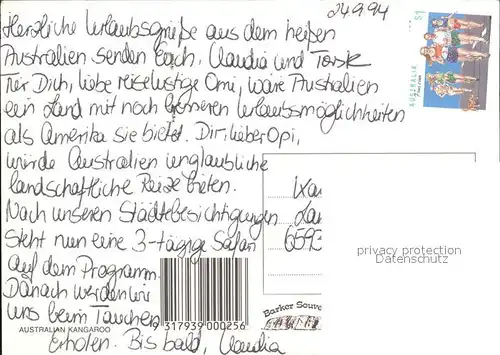 24.9.94
Herzliche Urlaubsgrüße aus dem heißen
Australien senden Euch, Claudia und
Für Dich, liebe reiselustige Omi, wäre Australien
ein Land mit noch besseren Urlaubsmöglichkeiten
als Amerika sie bietet. Dir, lieber Opi,
würde Australien unglaubliche
landschaftliche Reize bieten.
Nach unseren Städtebesichtigungen
steht nun eine 3-tägige Safari
auf dem Programm.
Danach werden wir
uns beim Tauchen
erholen. Bis bald, Claudia
$1
AUSTRALIA
privacy protection
Datenschutz
9 317939 000256
Barker Souve
AUSTRALIAN KANGAROO